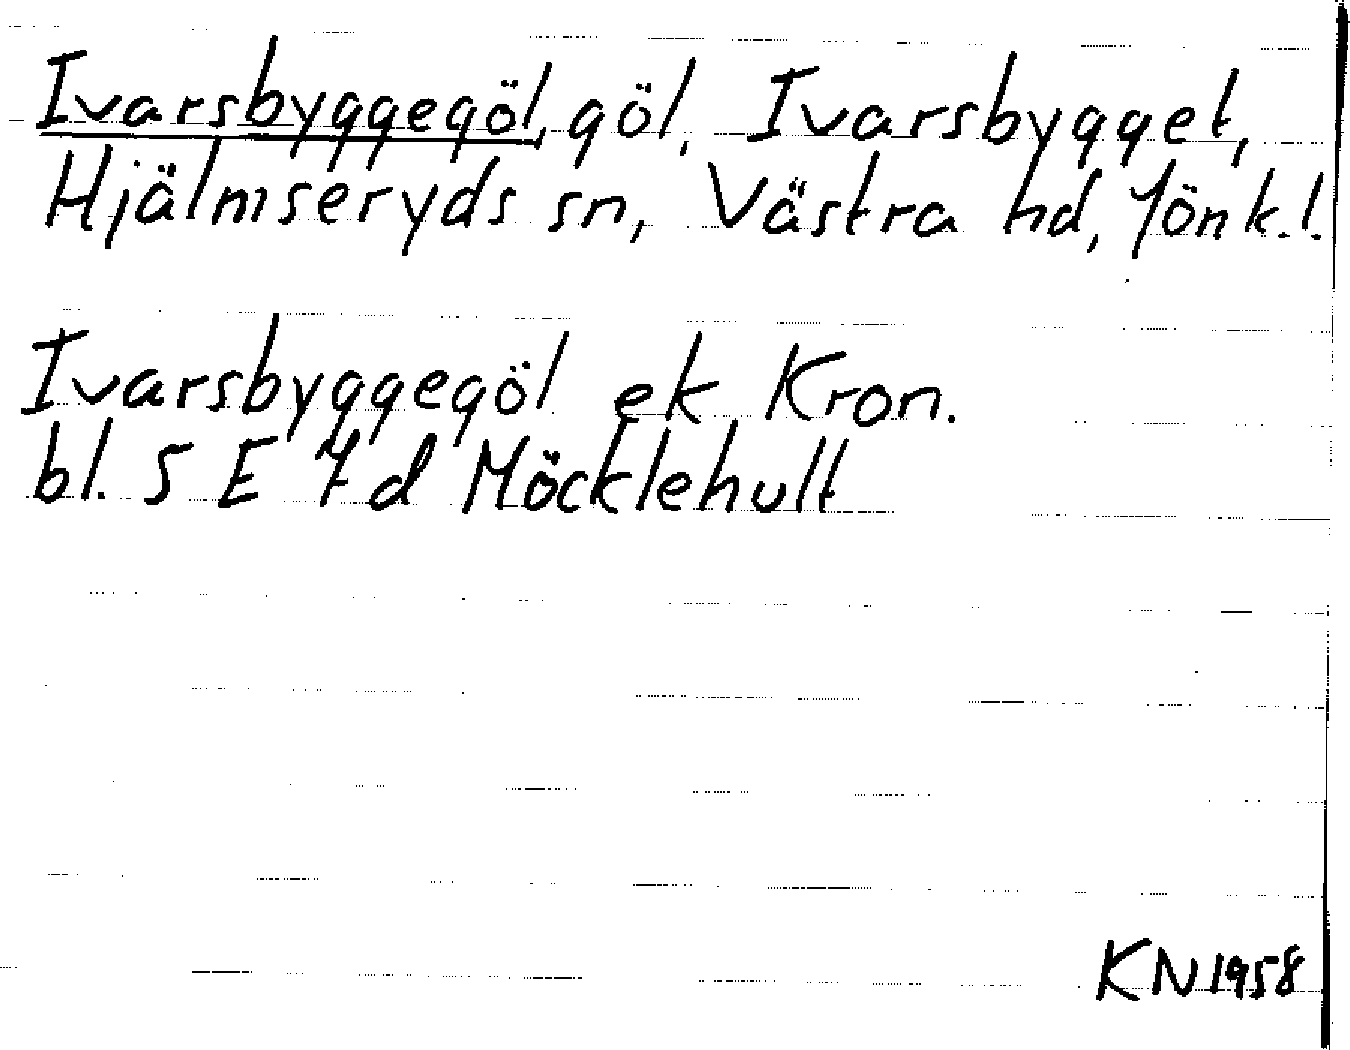 Ivarsbyggegöl, göl, Ivarsbygget,
Hjälmseryds sn, Västra hd, Jönk.l.
Ivarsbyggegöl ek Kron.
bl. 5 E 7 d Möcklehult
KN 1958